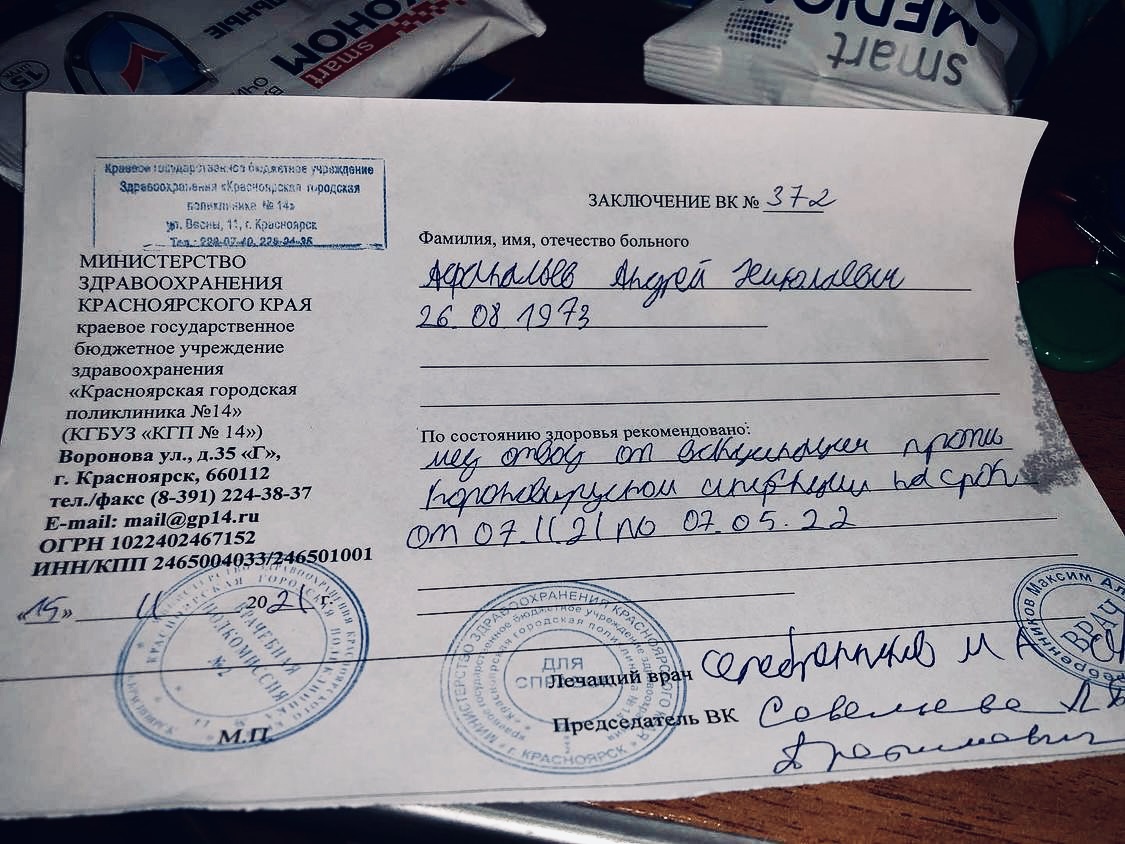 smart
MEDIUM
smart
ЭКОНОМ
15
Краевое государственное бюджетное учреждение
Здравоохранения «Красноярская городская
поликлиника № 14»
ул. Весны, 11, г. Красноярск
Тел.:
МИНИСТЕРСТВО
ЗДРАВООХРАНЕНИЯ
КРАСНОЯРСКОГО КРАЯ
краевое государственное
бюджетное учреждение
здравоохранения
«Красноярская городская
поликлиника №14»
(КГБУЗ «КГП № 14»)
Воронова ул., д.35 «Г»,
г. Красноярск, 660112
тел./факс (8-391) 224-38-37
E-mail: mail@gp14.ru
ОГРН 1022402467152
ИНН/КПП 2465004033/246501001
«15» 11 2021
ВРАЧЕБНАЯ
ПОДКОМИССИЯ
№ 2
М.П.
ЗАКЛЮЧЕНИЕ ВК № 372
Фамилия, имя, отчество больного
Афанасьев Андрей Николаевич
26.08.1973
По состоянию здоровья рекомендовано:
мед отвод от вакцинации против
короновирусной инфекции на срок
от 07.11.21 по 07.05.22
МИНИСТЕРСТВО ЗДРАВООХРАНЕНИЯ КРАСНОЯРСКОГО КРАЯ
г. КРАСНОЯРСК
ДЛЯ
Лечащий врач Серебренников М А
Председатель ВК Савельева Л
ВРАЧ